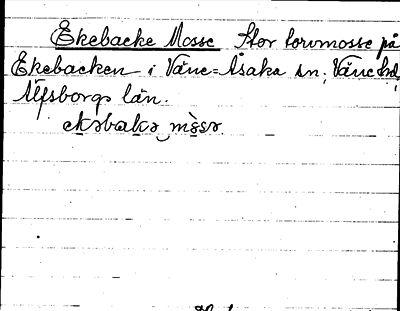 Ekebacke Mosse Stor torvmosse på
Ekebacken i Väne-Åsaka sn, Väne hd,
Älfsborgs län.
ekəbakə mòsə